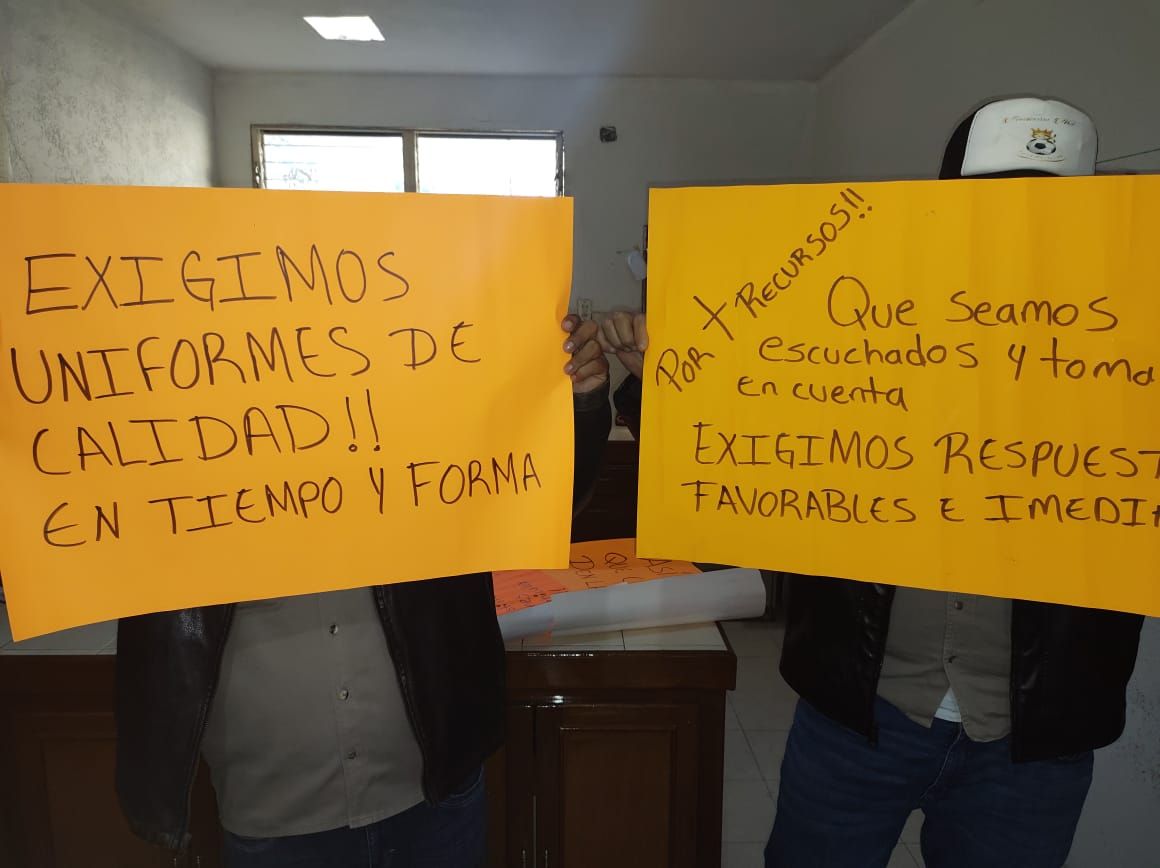 EXIGIMOS
UNIFORMES DE
CALIDAD!!
EN TIEMPO Y FORMA
POR + RECURSOS!!
Que seamos
escuchados y toma
en cuenta
EXIGIMOS RESPUEST
FAVORABLES E IMEDIA
ASI
QUE